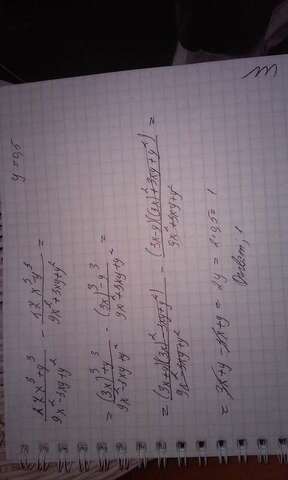 y = 0,5
(27x³ + y³)/(9x² - 3xy + y²) - (27x³ - y³)/(9x² + 3xy + y²) =
= ((3x)³ + y³)/(9x² - 3xy + y²) - ((3x)³ - y³)/(9x² + 3xy + y²) =
= ((3x+y)((3x)² - 3xy + y²))/(9x² - 3xy + y²) - ((3x-y)((3x)² + 3xy + y²))/(9x² + 3xy + y²) =
= 3x + y - 3x + y = 2y = 2·0,5 = 1
Ответ, 1